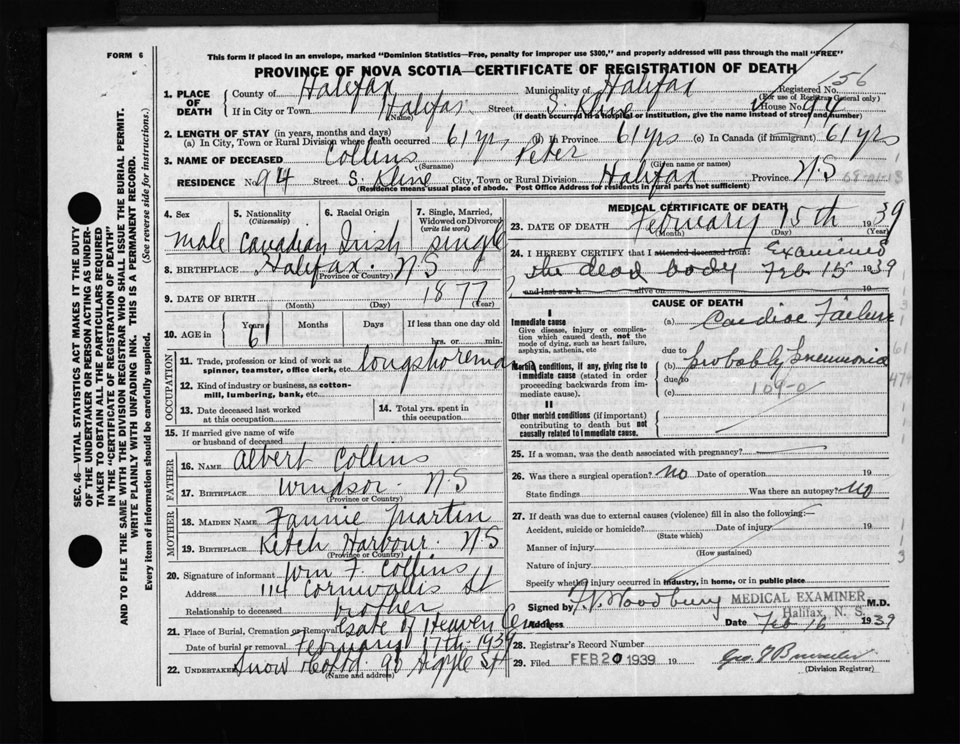 FORM 6
This form if placed in an envelope, marked "Dominion Statistics—Free, penalty for improper use $300," and properly addressed will pass through the mail "FREE"
PROVINCE OF NOVA SCOTIA—CERTIFICATE OF REGISTRATION OF DEATH
156
1. PLACE OF DEATH County of Halifax Municipality of Halifax Registered No.
(For use of Registrar General only)
If in City or Town Halifax Street S. Kline House No. 94
(Name) (If death occurred in a hospital or institution, give name instead of street and number)
2. LENGTH OF STAY (in years, months and days)
(a) In City, Town or Rural Division where death occurred 61 yrs (b) In Province 61 yrs (c) In Canada (if Immigrant) 61 yrs
3. NAME OF DECEASED Collins Peter
(Surname) (Given name or names)
RESIDENCE No. 94 Street S. Kline City, Town or Rural Division Halifax Province N.S
(Residence means usual place of abode. Post Office Address for residents in rural parts not sufficient)
4. Sex 5. Nationality (Citizenship) 6. Racial Origin 7. Single, Married, Widowed or Divorced (write the word)
Male Canadian Irish single
8. BIRTHPLACE Halifax. N S
(Province or Country)
9. DATE OF BIRTH 1877
(Month) (Day) (Year)
10. AGE in Years Months Days If less than one day old
61 hrs. or min.
OCCUPATION
11. Trade, profession or kind of work as spinner, teamster, office clerk, etc. longshoreman
12. Kind of industry or business, as cotton-mill, lumbering, bank, etc.
13. Date deceased last worked at this occupation
14. Total yrs. spent in this occupation
15. If married give name of wife or husband of deceased
FATHER
16. NAME Albert Collins
17. BIRTHPLACE Windsor. N.S
(Province or Country)
MOTHER
18. MAIDEN NAME Fannie Martin
19. BIRTHPLACE Ketch Harbour. NS
(Province or Country)
20. Signature of informant Wm F. Collins
Address 114 Cornwallis St
Relationship to deceased brother
21. Place of Burial, Cremation or Removal Gate of Heaven Cem
Date of burial or removal February 17th 1939
22. UNDERTAKER Snow &Co Ltd. 90 Argyle St
(Name and address)
MEDICAL CERTIFICATE OF DEATH
23. DATE OF DEATH February 15th 1939
(Month) (Day) (Year)
24. I HEREBY CERTIFY that I attended deceased from Examined
the dead body Feb 15 1939
and last saw h alive on 19
CAUSE OF DEATH
I
Immediate cause
Give disease, injury or complication which caused death, not the mode of dying, such as heart failure, asphyxia, asthenia, etc
(a) Cardiac Failure
due to
Morbid conditions, if any, giving rise to immediate cause (stated in order proceeding backwards from immediate cause)
(b) probably pneumonia
due to
(c) 109-0
II
Other morbid conditions (if important) contributing to death but not causally related to immediate cause.
25. If a woman, was the death associated with pregnancy?
26. Was there a surgical operation? No Date of operation 19
State findings Was there an autopsy? No
27. If death was due to external causes (violence) fill in also the following:
Accident, suicide or homicide? Date of injury 19
(State which)
Manner of injury
(How sustained)
Nature of injury
Specify whether injury occurred in industry, in home, or in public place
Signed by F.V. Woodbury MEDICAL EXAMINER M.D.
Halifax, N. S.
Address Date Feb 16 1939
28. Registrar's Record Number
29. Filed FEB 20 1939 19
(Division Registrar)
SEC. 46—VITAL STATISTICS ACT MAKES IT THE DUTY OF THE UNDERTAKER OR PERSON ACTING AS UNDERTAKER TO OBTAIN ALL THE PARTICULARS REQUIRED IN THE "CERTIFICATE OF REGISTRATION OF DEATH"
AND TO FILE THE SAME WITH THE DIVISION REGISTRAR WHO SHALL ISSUE THE BURIAL PERMIT.
WRITE PLAINLY WITH UNFADING INK. THIS IS A PERMANENT RECORD.
Every item of information should be carefully supplied. (See reverse side for instructions.)